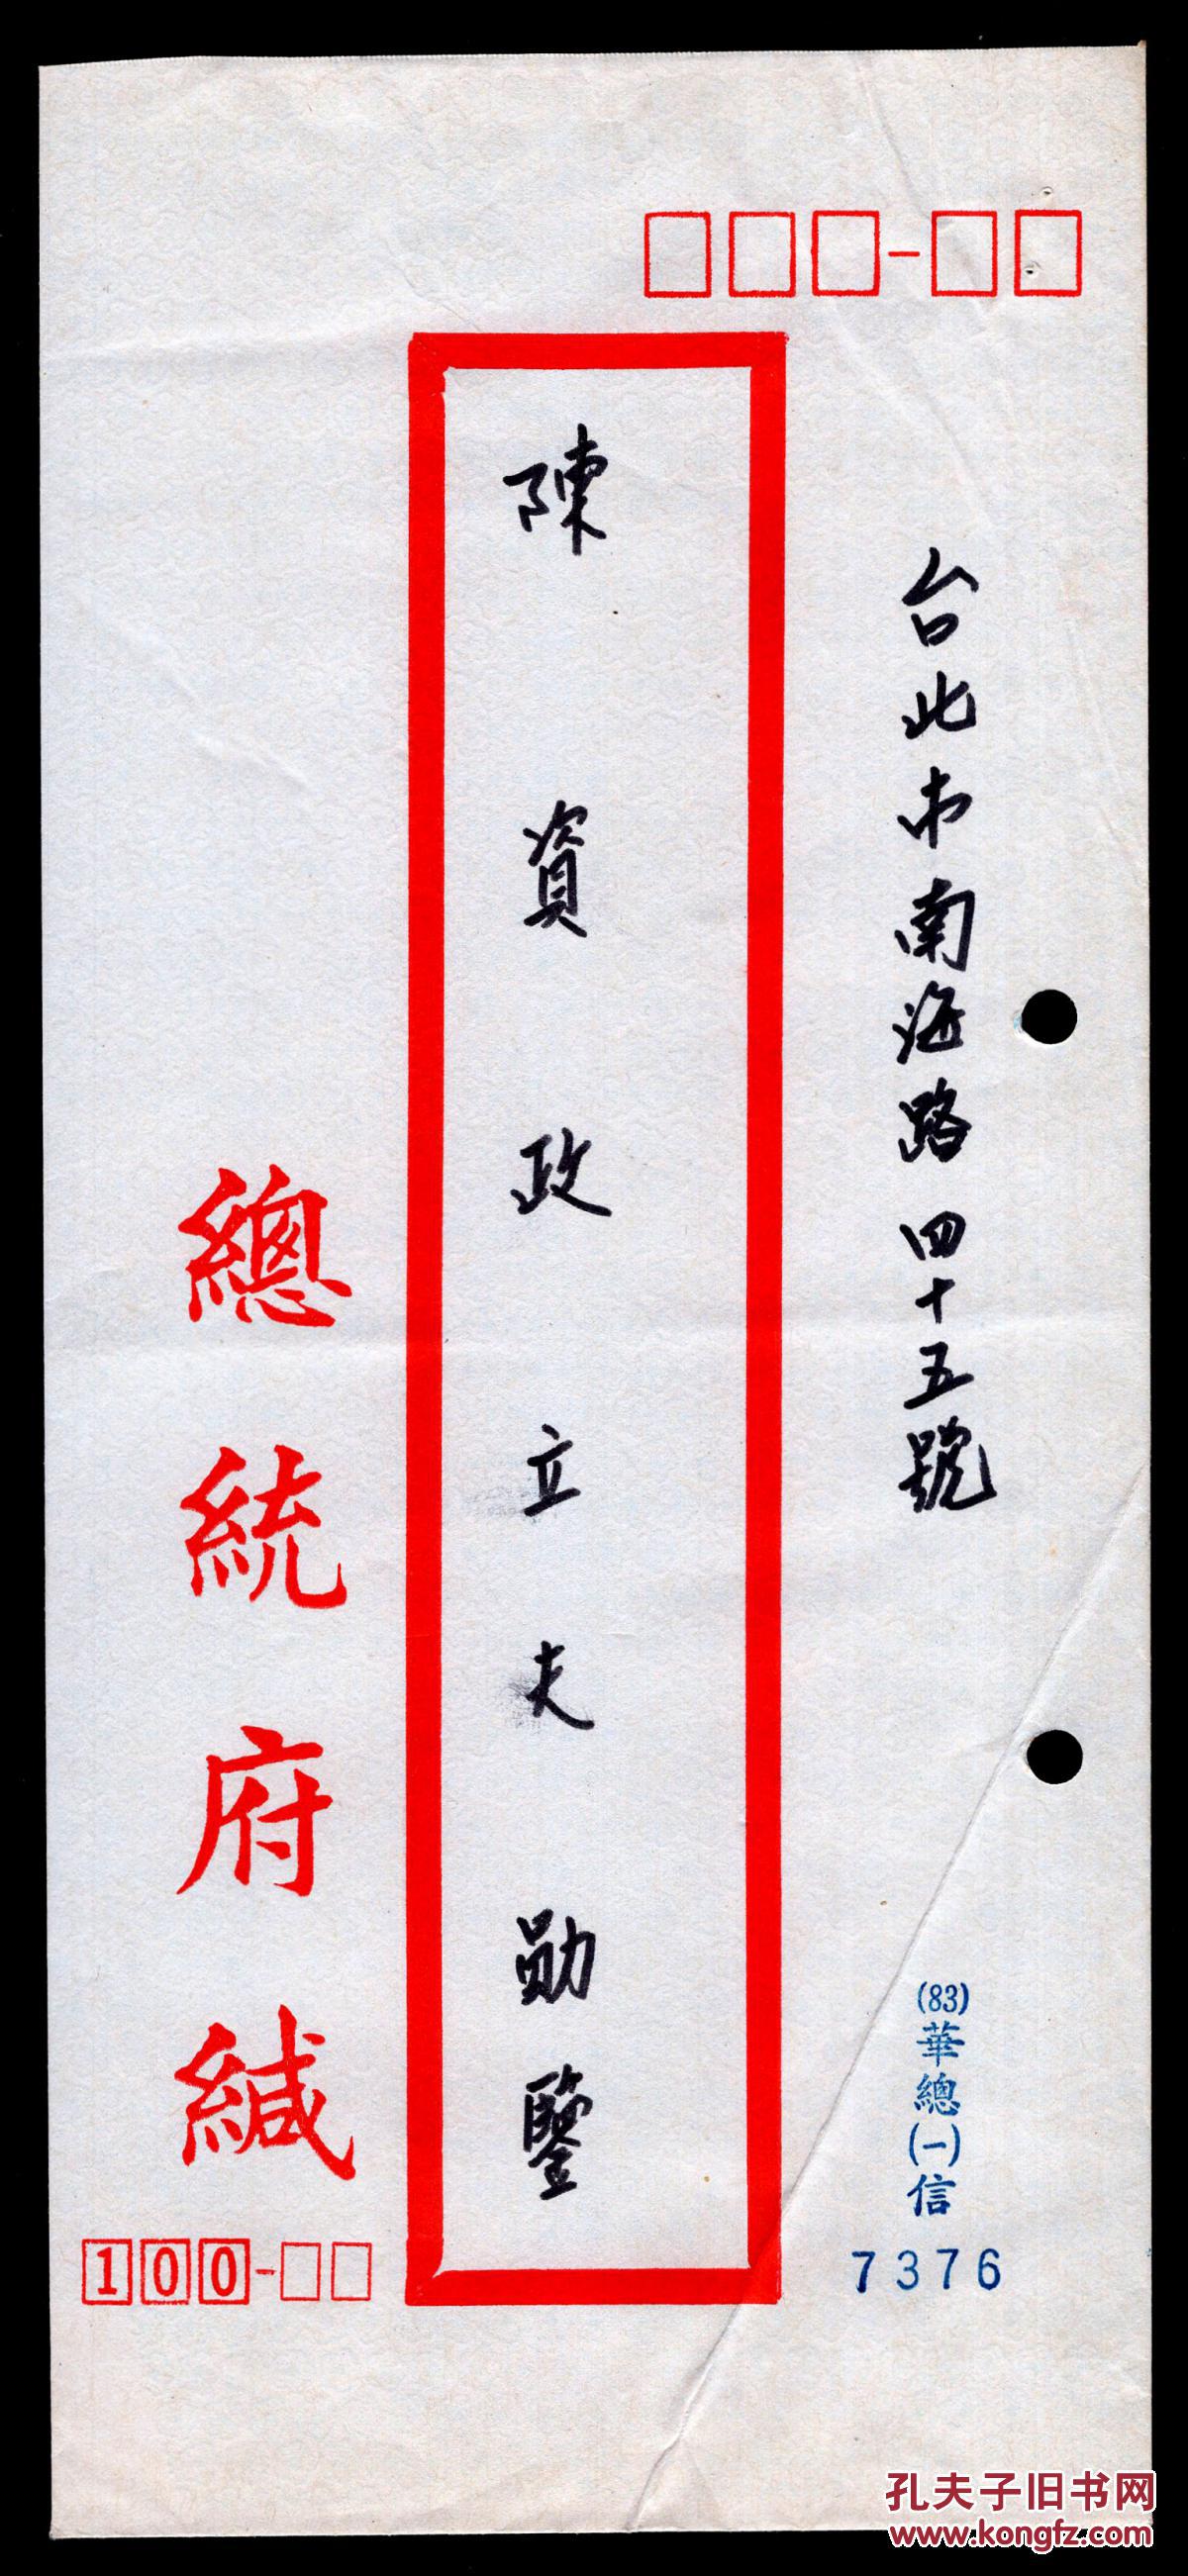 台北市南海路四十五號
(83)華總(一)信
7376
陳資政立夫勛鑒
總統府緘
100-
孔夫子旧书网
www.kongfz.com